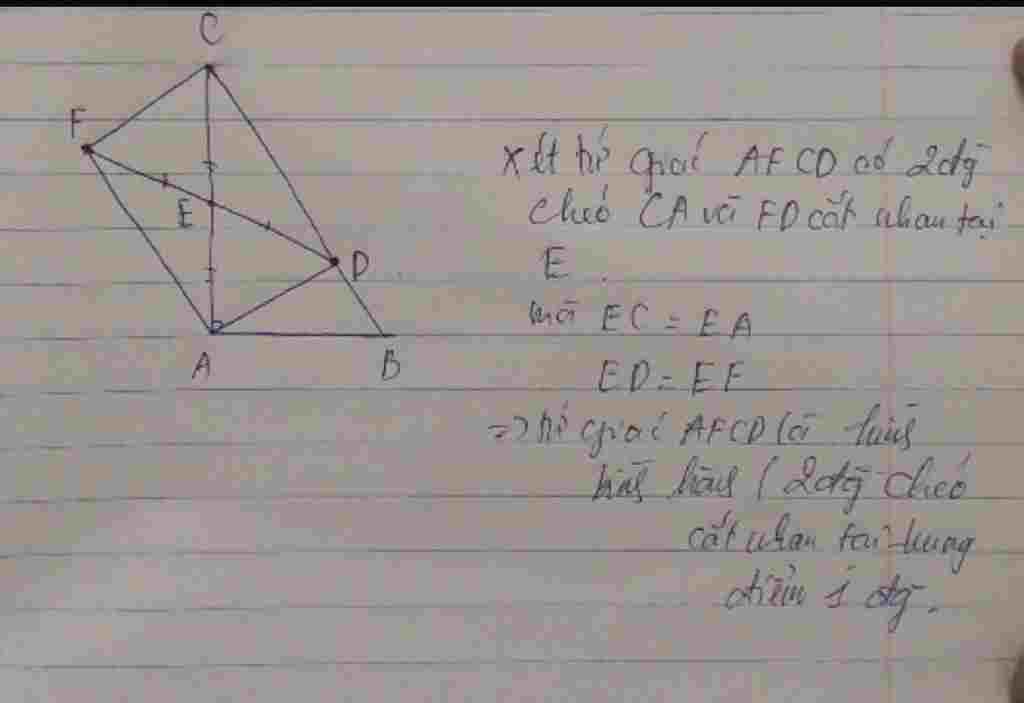 C
F
E
D
A
B
Xét tứ giác AFCD có 2 đg
chéo CA và FD cắt nhau tại
E.
mà EC = EA
ED = EF
=> tứ giác AFCD là hình
bình hành (2 đg chéo
cắt nhau tại trung
điểm 1 đg.